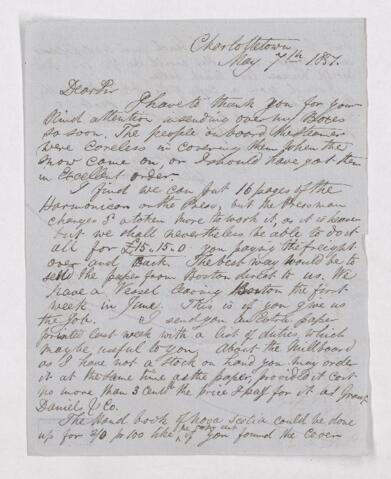 Charlottetown
May 7th 1857.
Dear Sir
I have to thank you for your
kind attention in sending over my Boxes
so soon. The people on board the steamer
were careless in covering them when the
snow came on, or I should have got them
in Excellent order.
I find we can put 16 pages of the
Harmonicon on the Press, but the Pressman
charges 3d a token more to work it, as it is heavier
but we shall nevertheless be able to do it
all for £15.15.0 you paying the freight
over and back. The best way would be to
send the paper from Boston direct to us. We
have a Vessel leaving Boston the first
week in June. This is if you give us
the Job. I send you an Extra paper
printed last week with a list of duties which
may be useful to you. About the Millboard
as I have not a stock on hand you may order
it at the same time as the paper, provided it cost
no more than 3 Cents the price I paid for it at Grant
Daniel & Co.
The Hand book of Nova Scotia could be done
up for 2/0 pr 100 like the one sent if you found the Cover